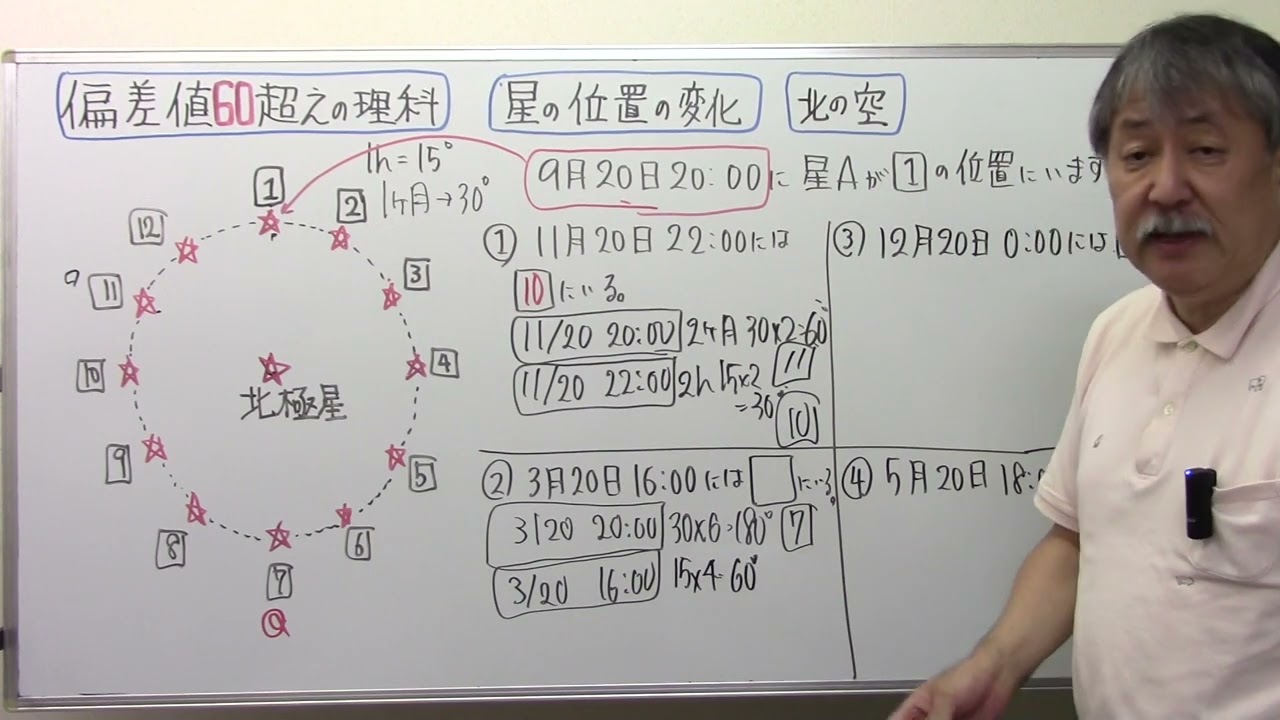 偏差値60超えの理科
星の位置の変化
北の空
1h=15°
1ヶ月→30°
9月20日20:00に星Aが1の位置にいます
1
2
3
4
5
6
7
8
9
10
11
12
9
北極星
Q
① 11月20日22:00には
10にいる。
11/20 20:00 2ヶ月 30×2=60°
11
11/20 22:00 2h 15×2
=30°
10
② 3月20日16:00には□にいる。
3/20 20:00 30×6=180° 7
3/20 16:00 15×4=60°
③ 12月20日0:00には
④ 5月20日18: